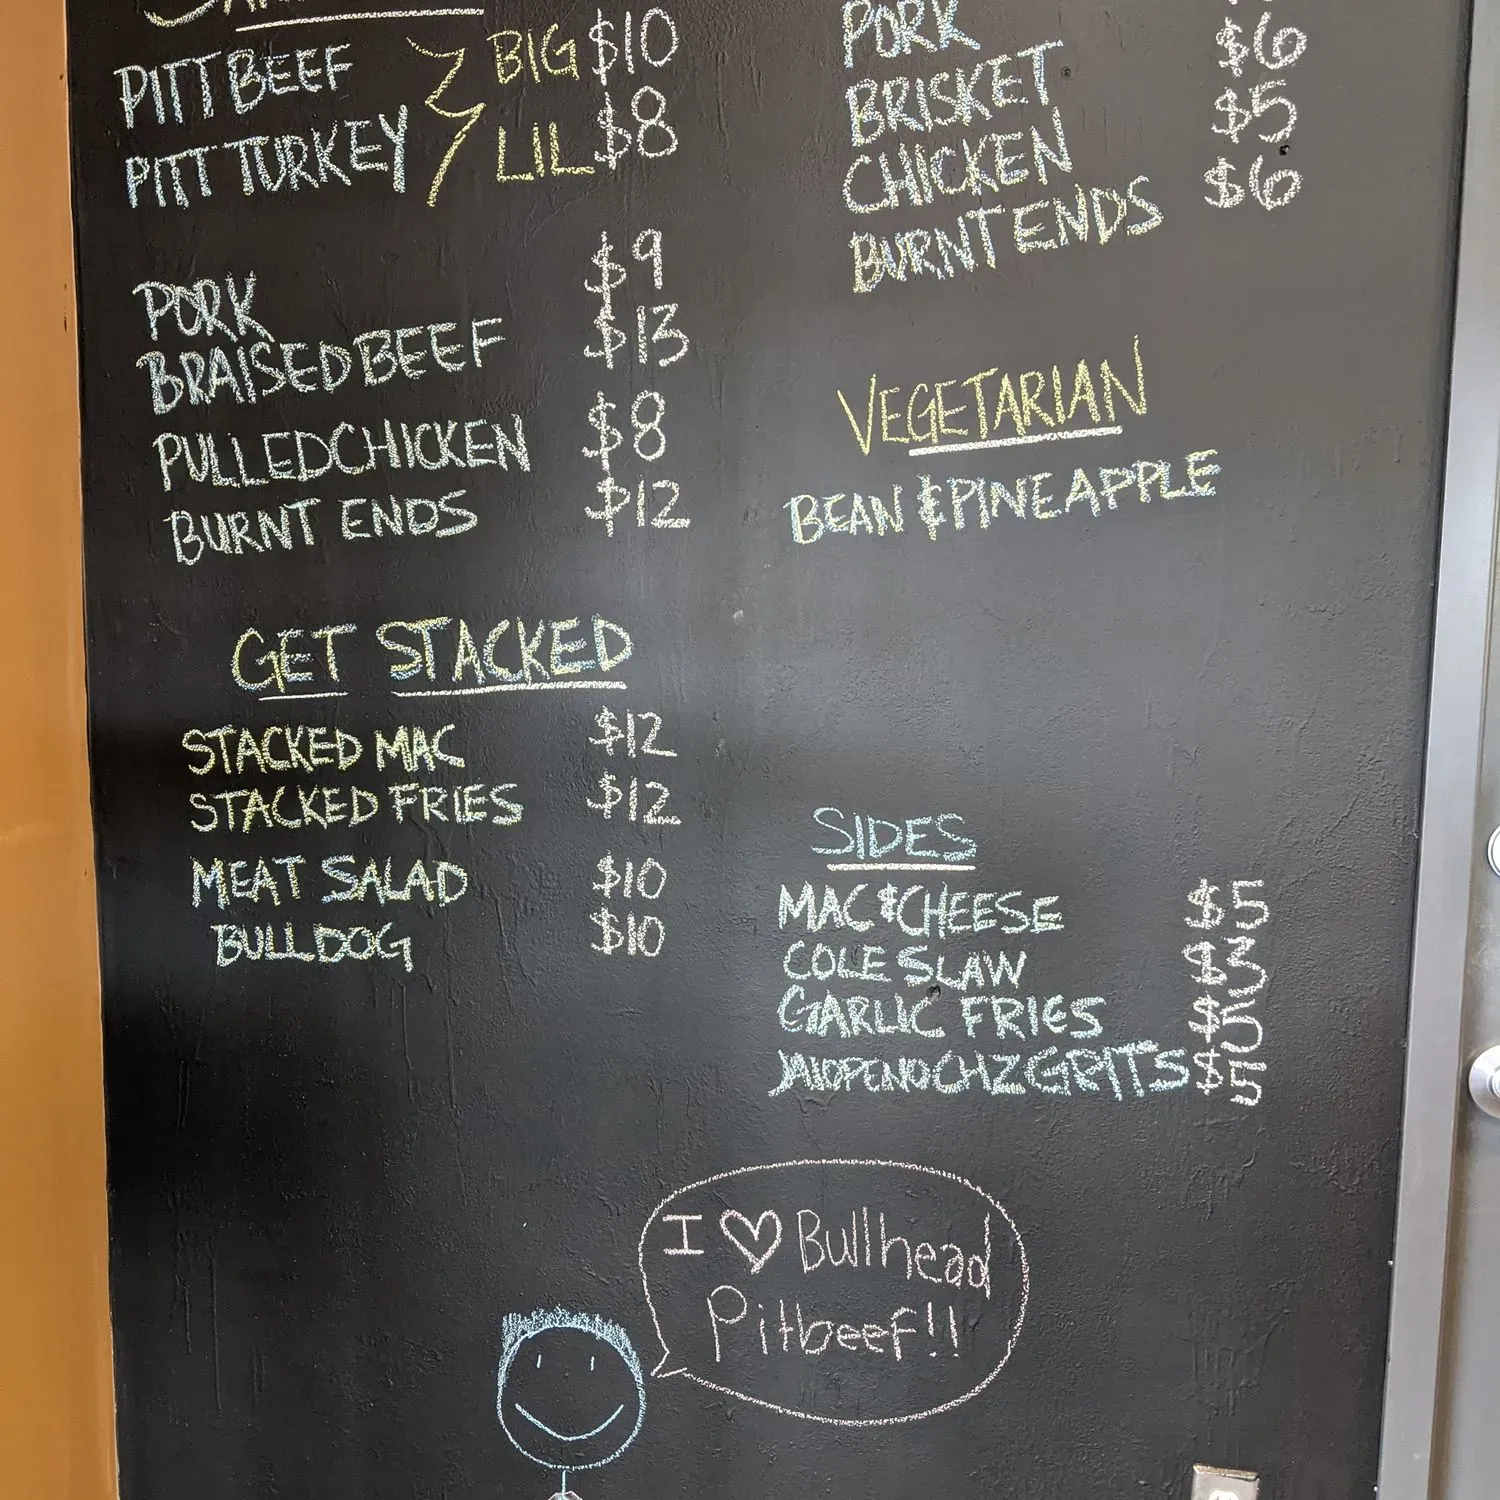 PITT BEEF
BIG $10
PITT TURKEY
LIL $8
PORK $9
BRAISED BEEF $13
PULLED CHICKEN $8
BURNT ENDS $12
GET STACKED
STACKED MAC $12
STACKED FRIES $12
MEAT SALAD $10
BULLDOG $10
PORK
BRISKET $6
CHICKEN $5
BURNT ENDS $6
VEGETARIAN
BEAN & PINEAPPLE
SIDES
MAC & CHEESE $5
COLE SLAW $3
GARLIC FRIES $5
JALOPENO CHZ GRITS $5
I ♡ Bullhead
Pitbeef!!